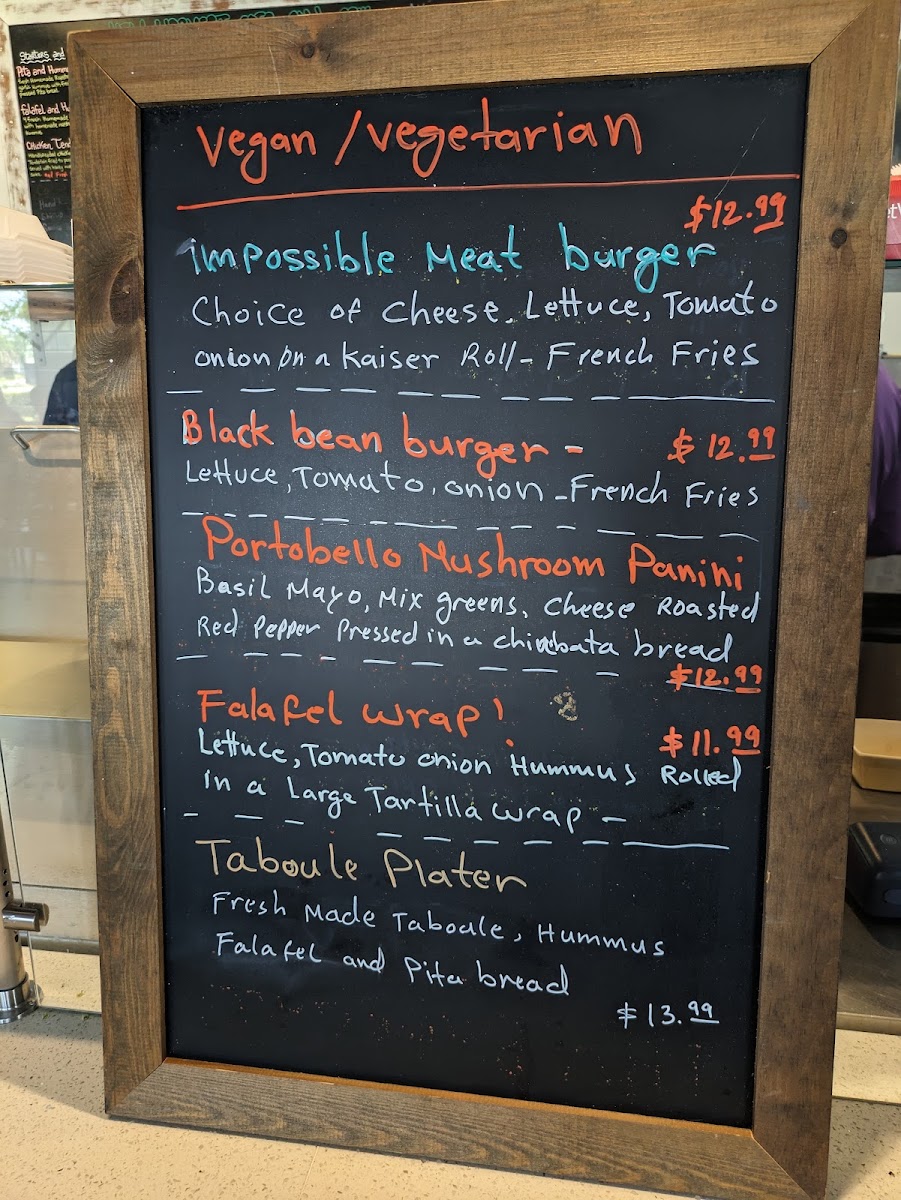 Starters and
Pita and Hummu
Falafel and H
Chicken Tend
Vegan / vegetarian
$12.99
impossible Meat burger
Choice of cheese, Lettuce, Tomato
onion on a Kaiser Roll - French Fries
Black bean burger - $12.99
Lettuce, Tomato, onion - French Fries
Portobello Mushroom Panini
Basil Mayo, Mix greens, cheese Roasted
Red Pepper Pressed in a chiabata bread
$12.99
Falafel wrap! $11.99
Lettuce, Tomato onion Hummus Rolled
in a Large Tartilla wrap -
Taboule Plater
Fresh Made Taboule, Hummus
Falafel and Pita bread
$13.99